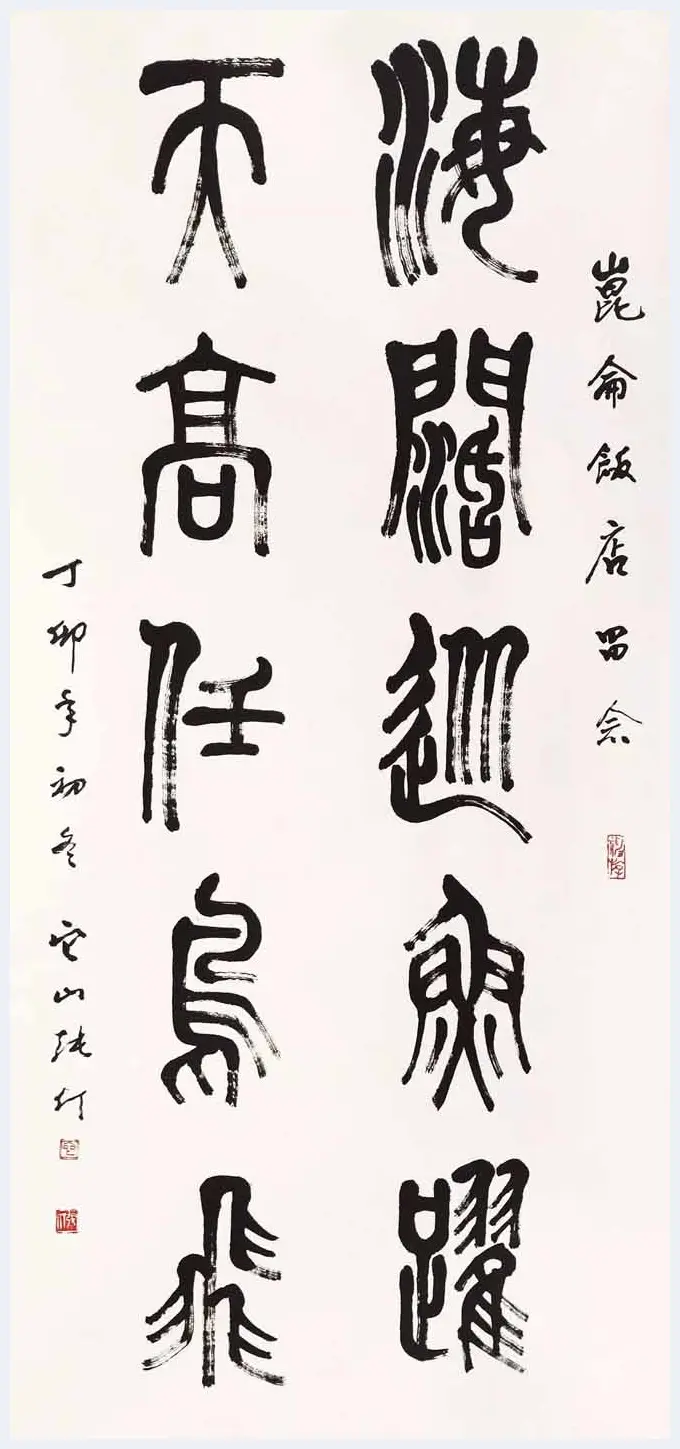 崑侖飯店留念
海闊巡魚躍
天高任鳥飛
丁卯年初冬 它山張仃